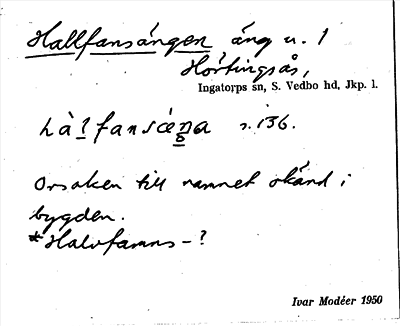 Hallfansängen äng u. 1
Hörtingsås,
Ingatorps sn, S. Vedbo hd, Jkp. l.
hàlfansæŋa s. 136.
Orsaken till namnet okänd i
bygden.
*Halvfamns-?
Ivar Modéer 1950